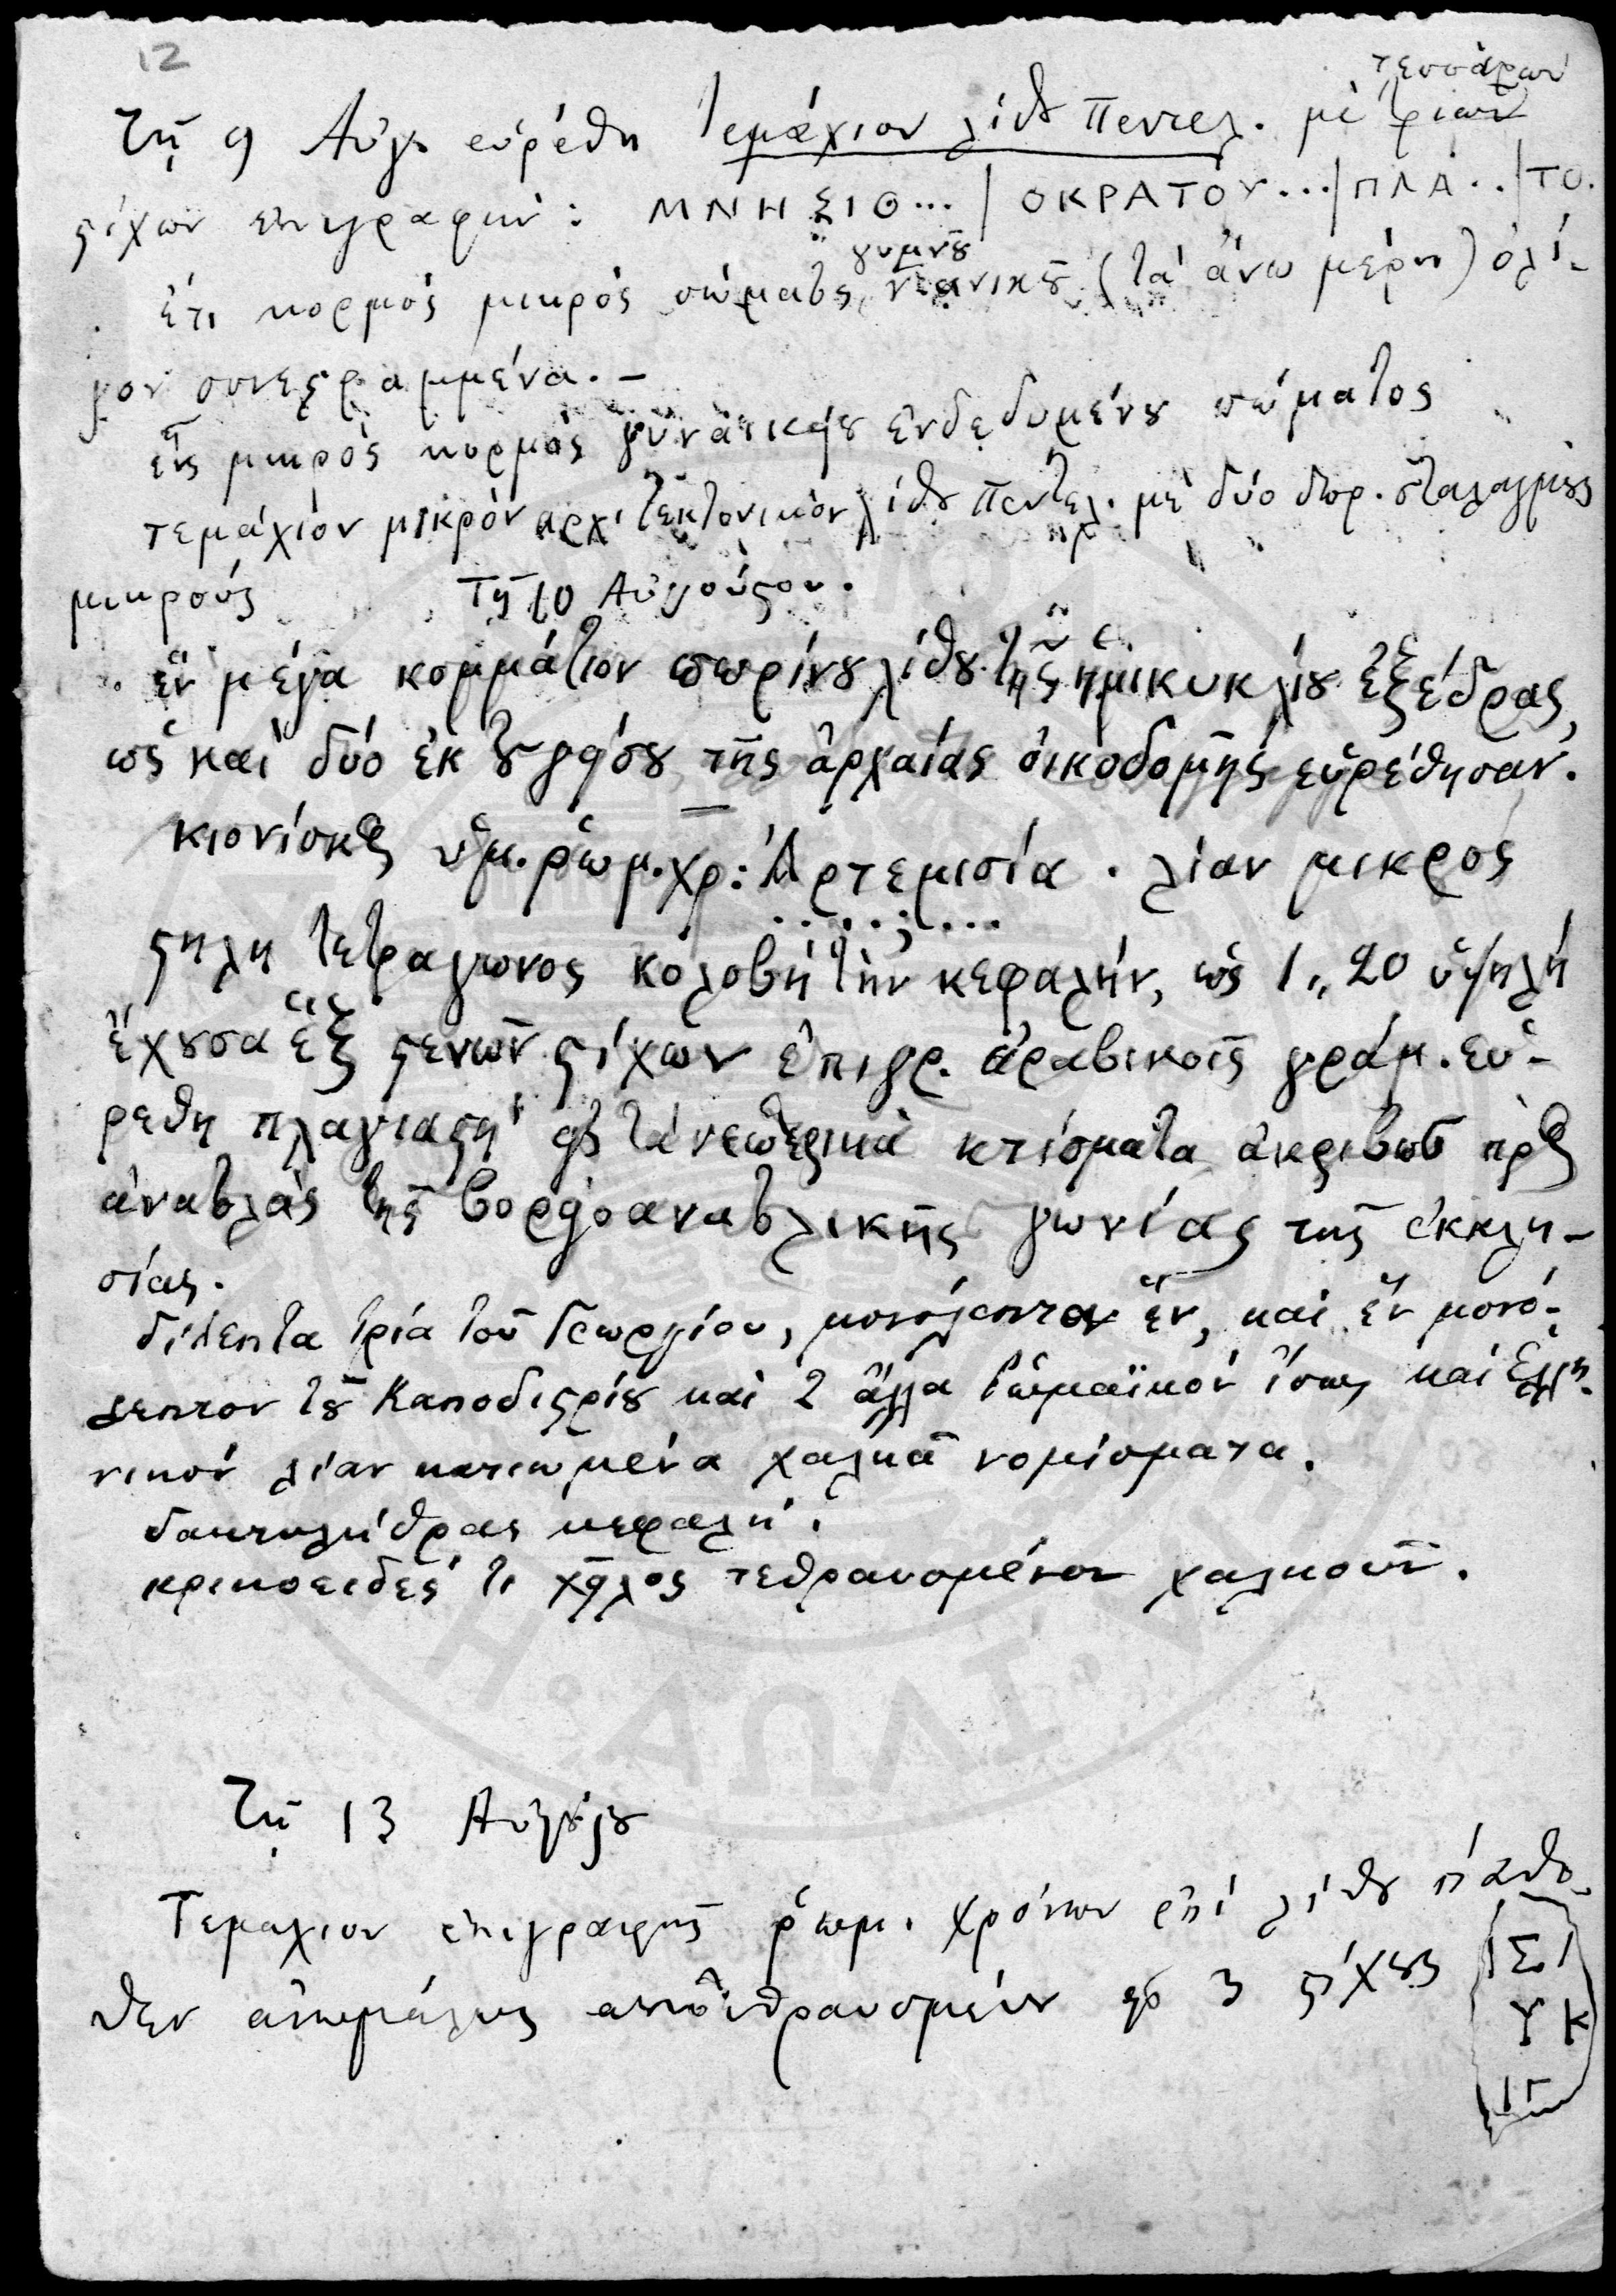 12
τεσσάρων
Τῇ 9 Αὐγ. εὑρέθη τεμάχιον λίθȣ Πεντελ. μὲ τριῶν
ϛίχων ἐπιγραφήν: ΜΝΗΣΙΘ... | ΟΚΡΑΤΟΥ... | ΠΛΑ.. | ΤΟ.
γυμνȣ̃
ἔτι κορμὸς μικρὸς σώματος νεανικȣ̃ (τὰ ἄνω μέρη) ὀλί-
γον συνεϛραμμένα. –
εἷς μικρὸς κορμὸς γυναικείȣ ἐνδεδυμένȣ σώματος
τεμάχιον μικρὸν ἀρχιτεκτονικὸν λίθȣ Πεντελ. μὲ δύο δωρ. σταλαγμȣ̀ς
μικρούς Τῇ 10 Αὐγούϛου.
ἓν μέγα κομμάτιον πωρίνȣ λίθȣ τῆς ἡμικυκλίȣ ἐξέδρας,
ὡς καὶ δύο ἐκ τȣ̃ γείσȣ τῆς ἀρχαίας οἰκοδομῆς εὑρέθησαν.
κιονίσκος ὑμ. ῥωμ. χρ: Ἀρτεμισία . λίαν μικρὸς
ϛήλη τετράγωνος κολοβὴ τὴν κεφαλήν, ὡς 1,,20 ὑψηλὴ
ἔχȣσα ἓξ ϛενῶν ϛίχων ἐπιγρ. ἀραβικοῖς γράμ. εὑ-
ρέθη πλαγιαϛὴ εἰς τὰ νεωτερικὰ κτίσματα ἀκριβῶς πρὸς
ἀνατολὰς τῆς βορειοανατολικῆς γωνίας τῆς ἐκκλη-
σίας.
δίλεπτα τρία τοῦ Γεωργίου, μονόλεπτον ἕν, καὶ ἓν μονό-
λεπτον τȣ̃ Καποδιϛρίȣ καὶ 2 ἄλλα ῥωμαϊκὸν ἴσως καὶ Ἑλλη-
νικὸν λίαν κατιωμένα χαλκᾶ νομίσματα.
δακτυλήθρας κεφαλή.
κρικοειδές τι χεῖλος τεθραυσμένον χαλκοῦν.
Τῇ 13 Αὐγȣ́ϛȣ
Τεμάχιον ἐπιγραφῆς ῥωμ. χρόνων ἐπὶ λίθȣ πάντο-
θεν ἀνωμάλως ἀποτεθραυσμένȣ εἰς 3 ϛίχȣς
ΙΣΙ
ΥΚ
ΙΓ